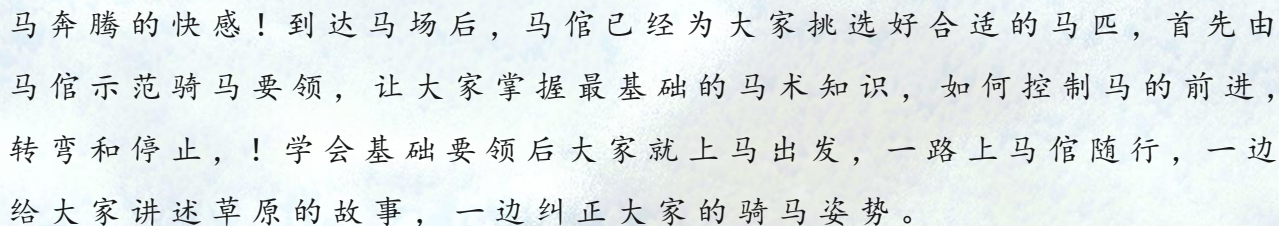 马奔腾的快感！到达马场后，马倌已经为大家挑选好合适的马匹，首先由
马倌示范骑马要领，让大家掌握最基础的马术知识，如何控制马的前进，
转弯和停止，！学会基础要领后大家就上马出发，一路上马倌随行，一边
给大家讲述草原的故事，一边纠正大家的骑马姿势。